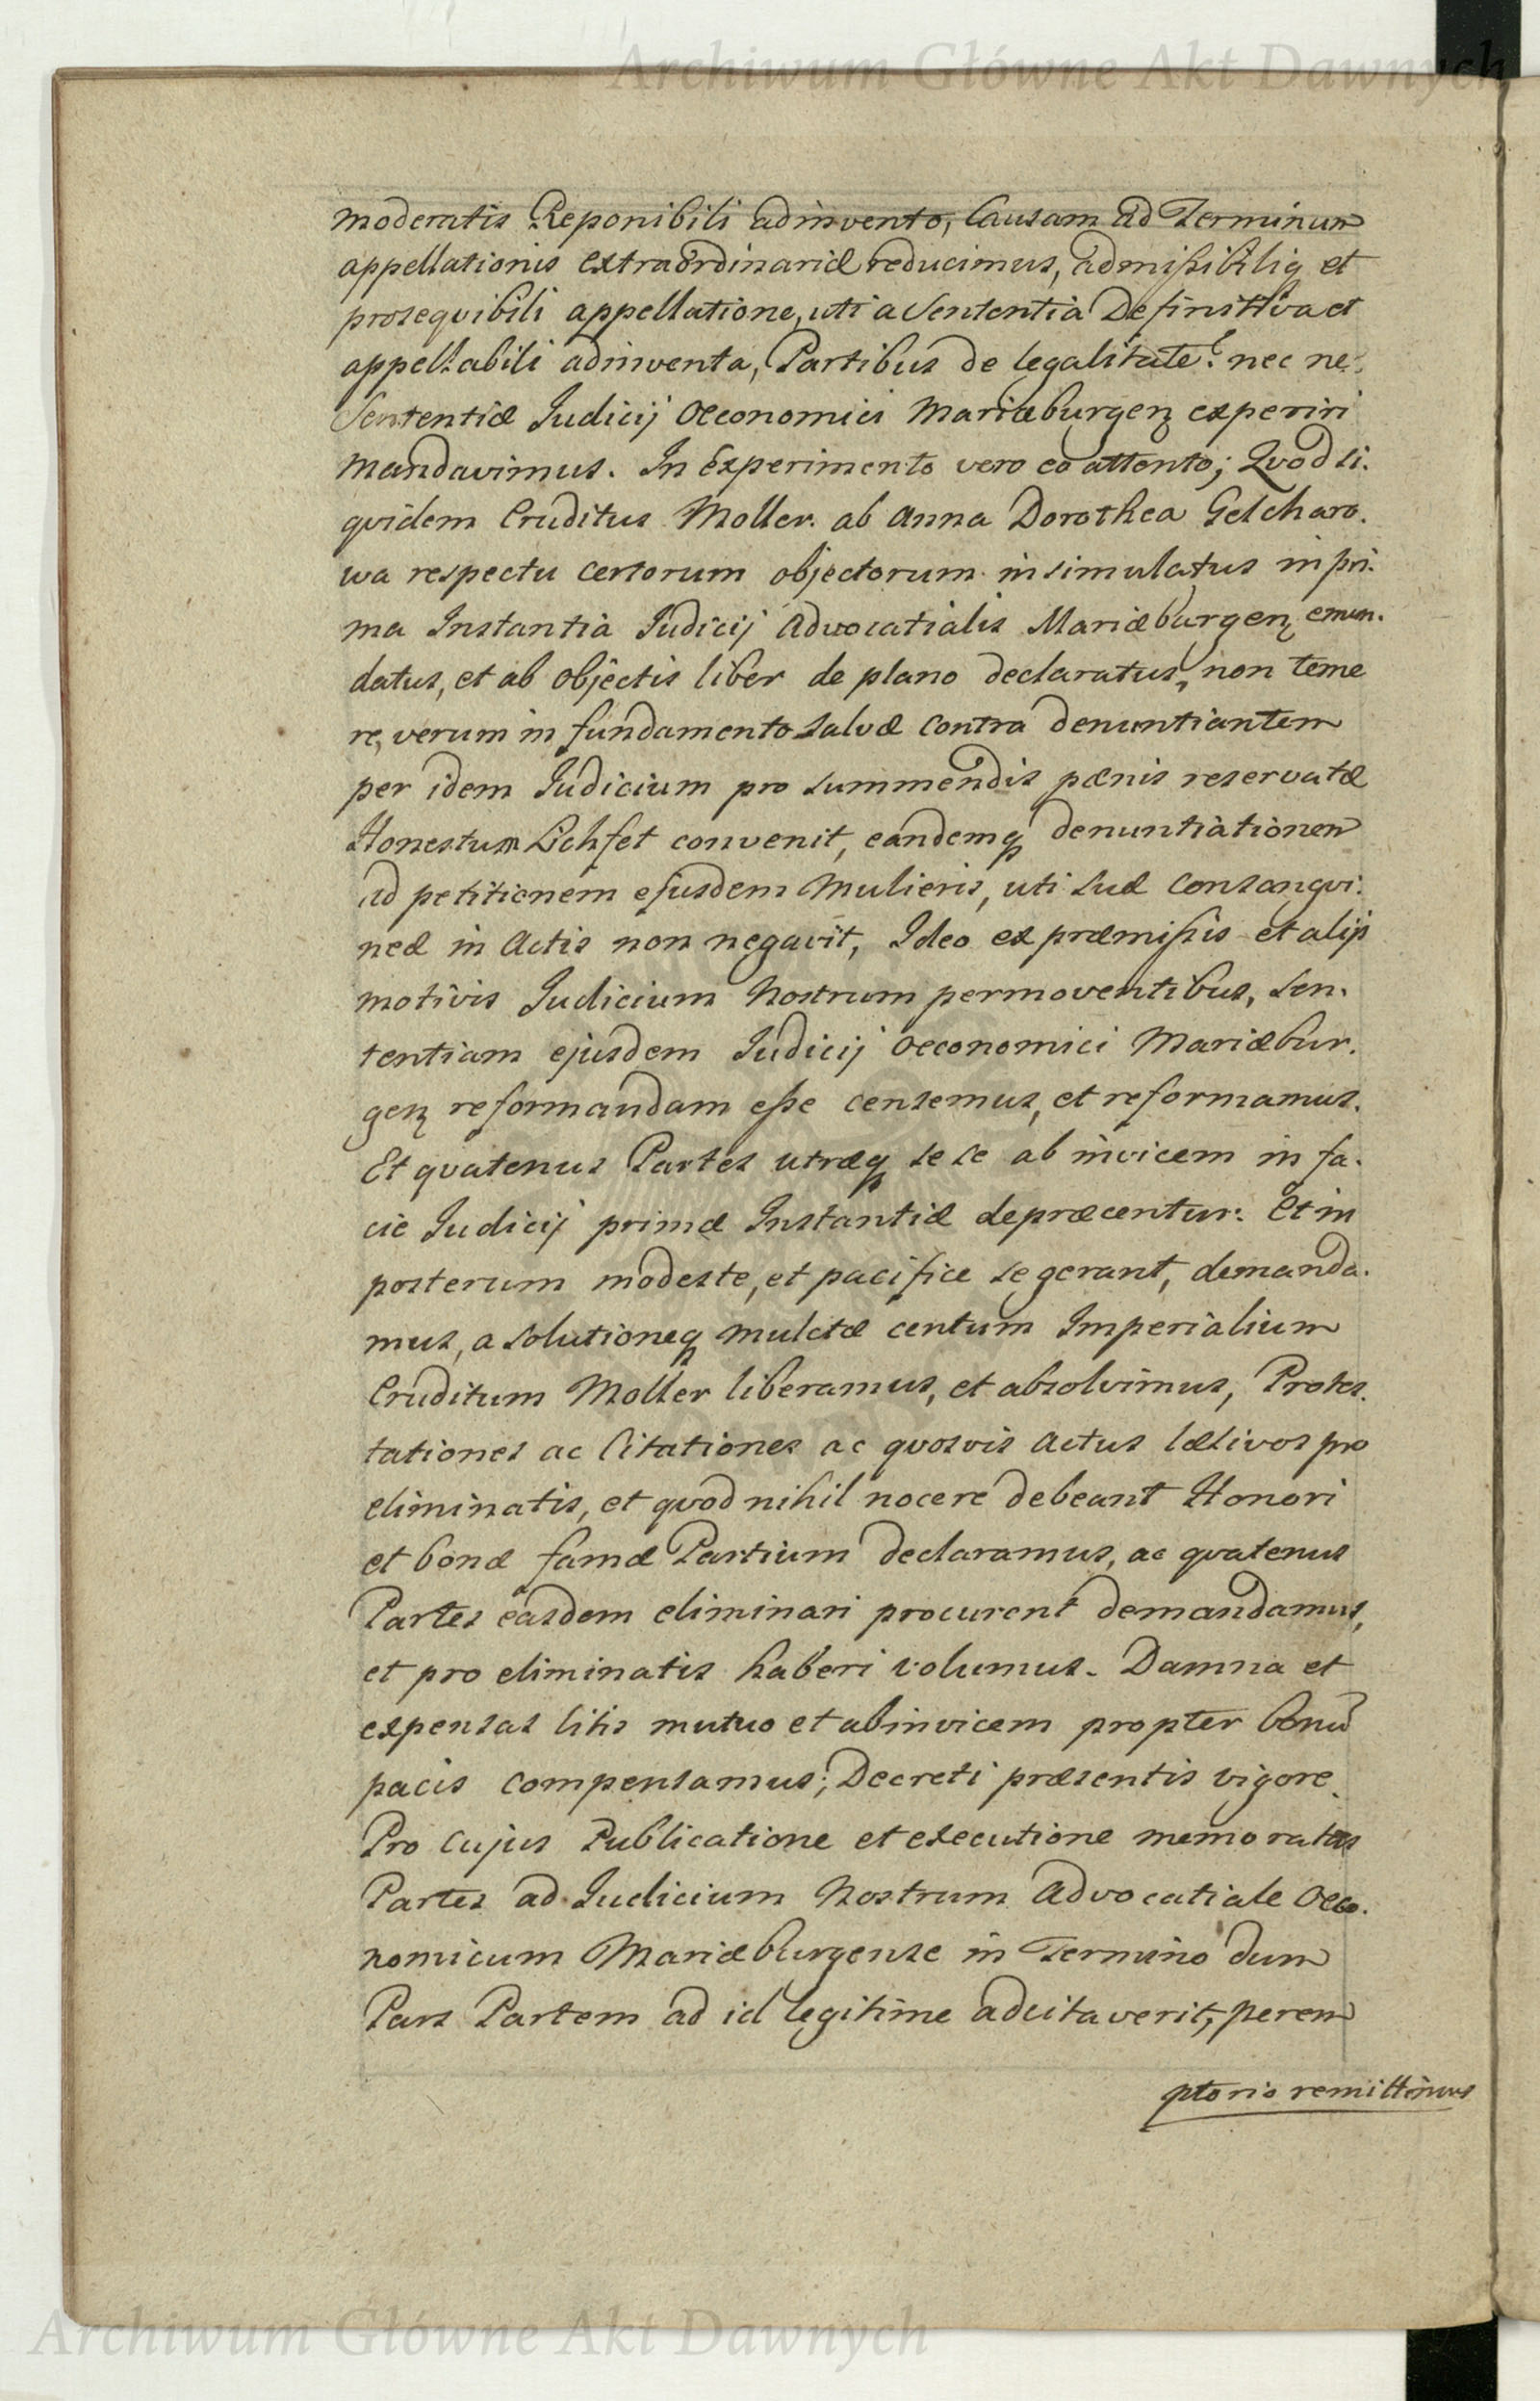 Archiwum Główne Akt Dawnych
moderatis Reponibili adinvento, Causam ad Terminum
appellationis extraordinariæ reducimus, admissibiliq et
proseqvibili appellatione, uti a Sententia Definitiva et
appellabili adinventa, Partibus de legalitate? nec ne
Sententiæ Judicij Oeconomici Mariæburgen experiri
mandavimus. In Experimento vero eo attento; Qvod si.
qvidem Eruditus Moller. ab Anna Dorothea Gelcharo.
wa respectu certorum objectorum insimulatus in pri.
ma Instantia Judicij Advocatialis Mariæburgen emun.
datus, et ab objectis liber de plano declaratus, non teme
re, verum in fundamento salvæ contra denuntiantem
per idem Judicium pro summendis pænis reservatæ
Honestum Lichfet convenit, eandemq denuntiationem
ad petitionem ejusdem Mulieris, uti suæ consangvi.
neæ in Actis non negavit, Ideo ex præmissis et alijs
motivis Judicium Nostrum permoventibus, Sen.
tentiam ejusdem Judicij Oeconomici Mariæbur.
gen reformandam esse censemus, et reformamus.
Et qvatenus Partes utræq se se ab invicem in fa.
cie Judicij primæ Instantiæ depræcentur: Et in
posterum modeste, et pacifice se gerant, demanda.
mus, a solutioneq mulctæ centum Imperialium
Eruditum Moller liberamus, et absolvimus, Protes.
tationes ac Citationes ac qvosvis Actus læsivos pro
eliminatis, et qvod nihil nocere debeant Honori
et bonæ famæ Partium declaramus, ac qvatenus
Partes easdem eliminari procurent demandamus,
et pro eliminatis haberi volumus. Damna et
expensas litis mutuo et abinvicem propter bonu
pacis compensamus; Decreti præsentis vigore.
Pro cujus Publicatione et executione memoratas
Partes ad Judicium Nostrum Advocatiale Oeco.
nomicum Mariæburgense in Termino dum
Pars Partem ad id legitime adcitaverit, perem
ptorio remittimus
Archiwum Główne Akt Dawnych